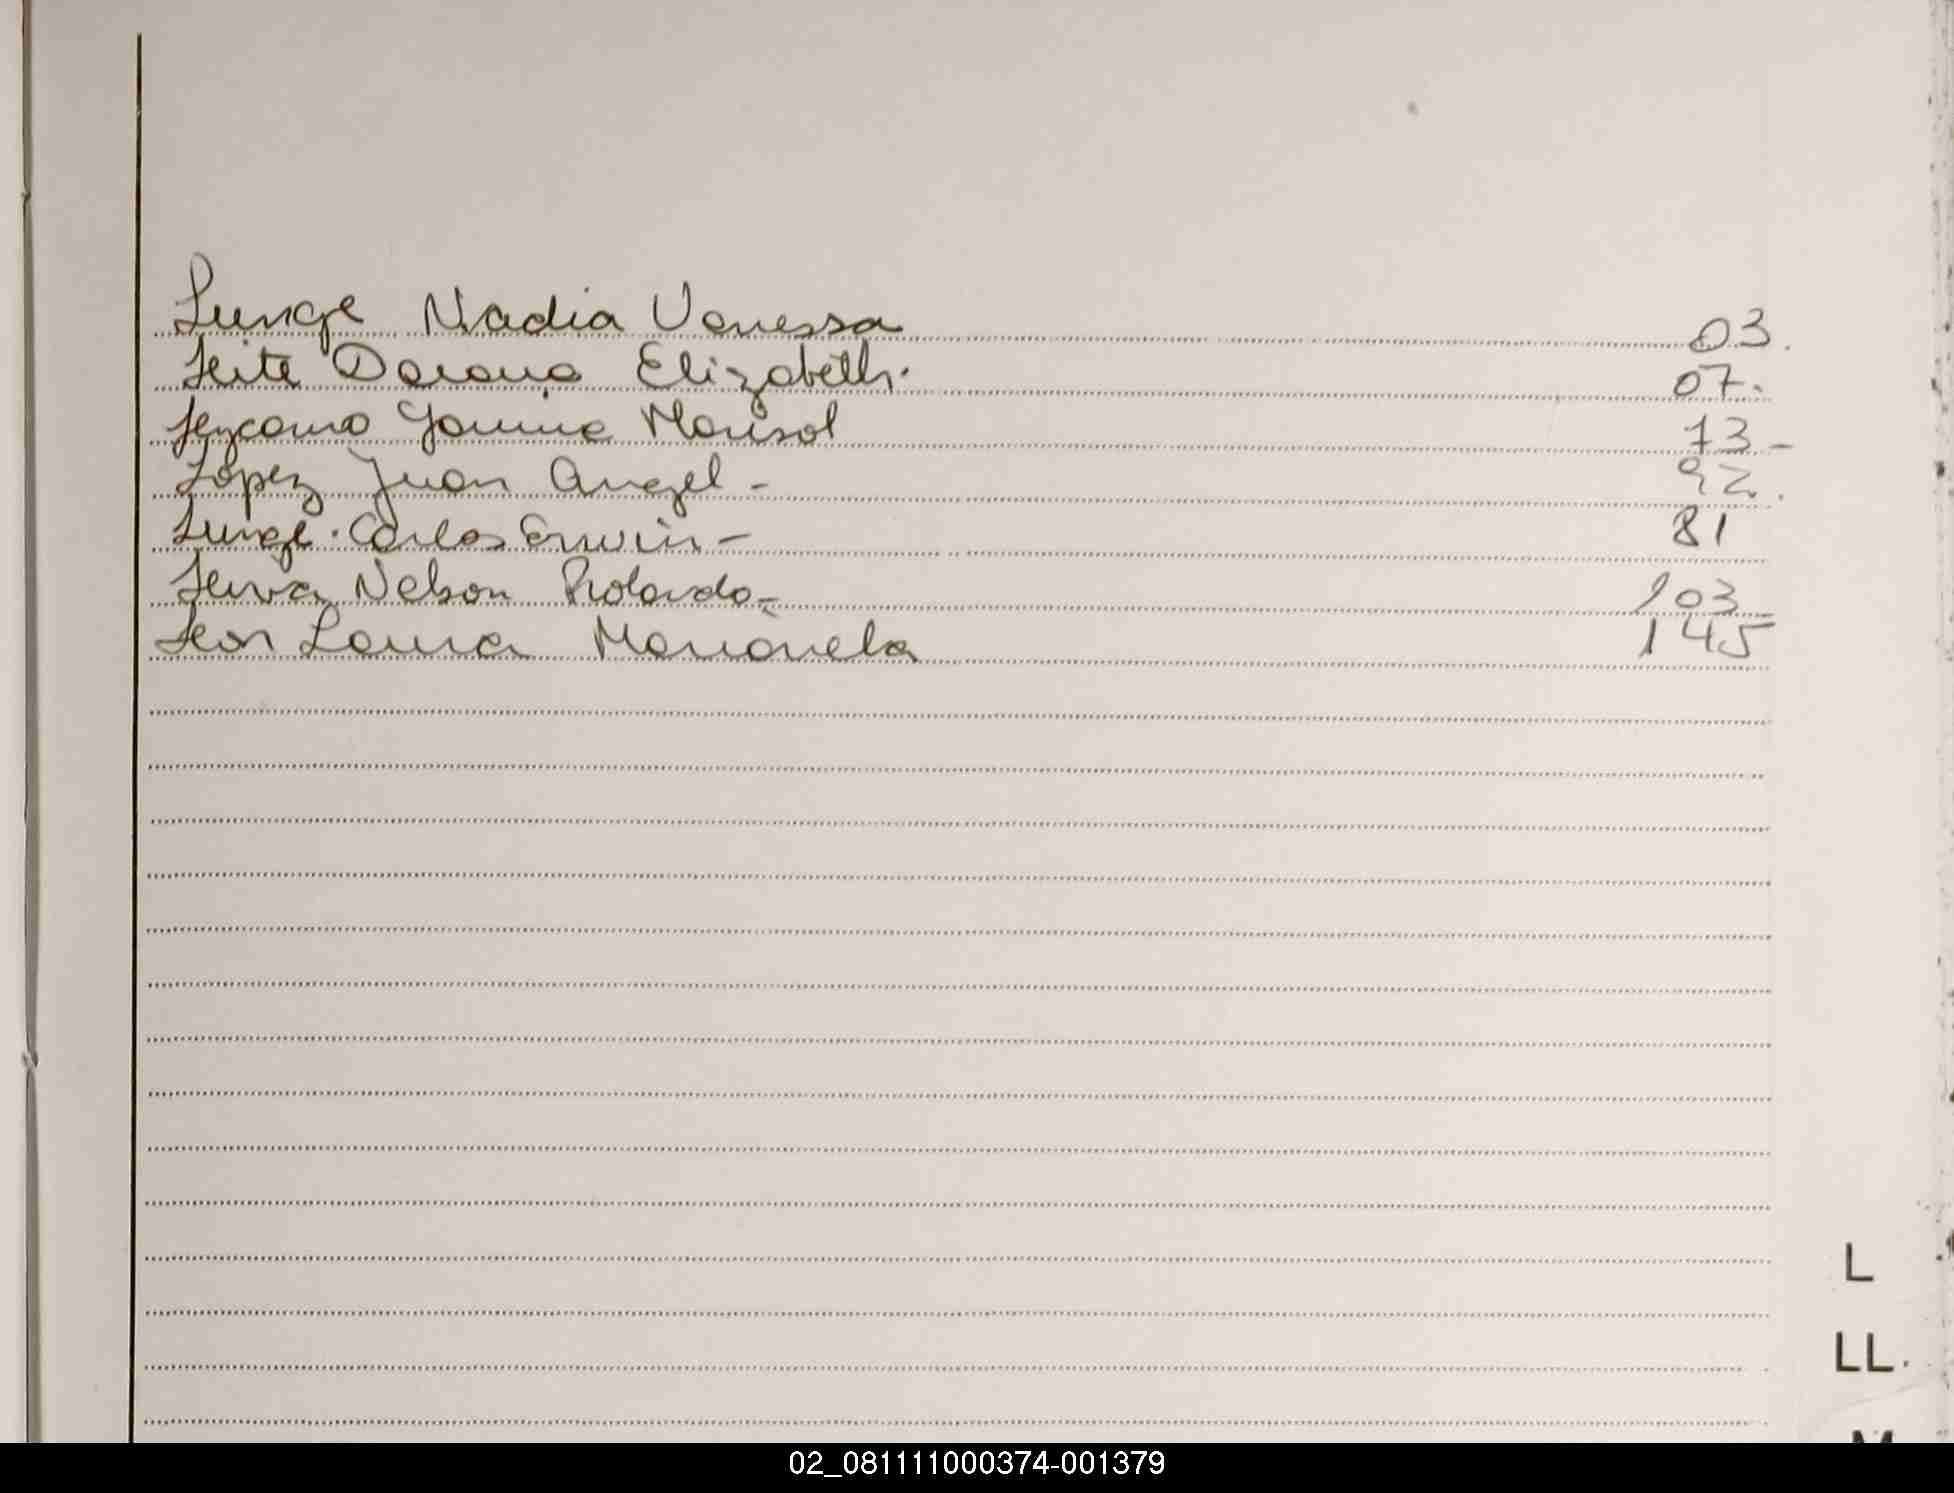 Lunge Nadia Vanessa 03.
Leite Daiana Elizabeth. 07.
Lezcano Yanina Marisol 73-
Lopez Juan Angel - 92.
Lunge. Carlos Erwin - 81
Leiva Nelson Rolando - 103
Leon Laura Marianela 145
L
LL
M
02_081111000374-001379